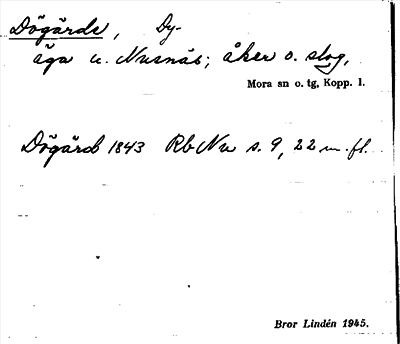 Dögårds, Dy-
äga u. Nusnäs; åker o. slog,
Mora sn o. tg, Kopp. l.
Dögård 1843 Rb Nu s. 9, 22 m. fl.
Bror Lindén 1945.